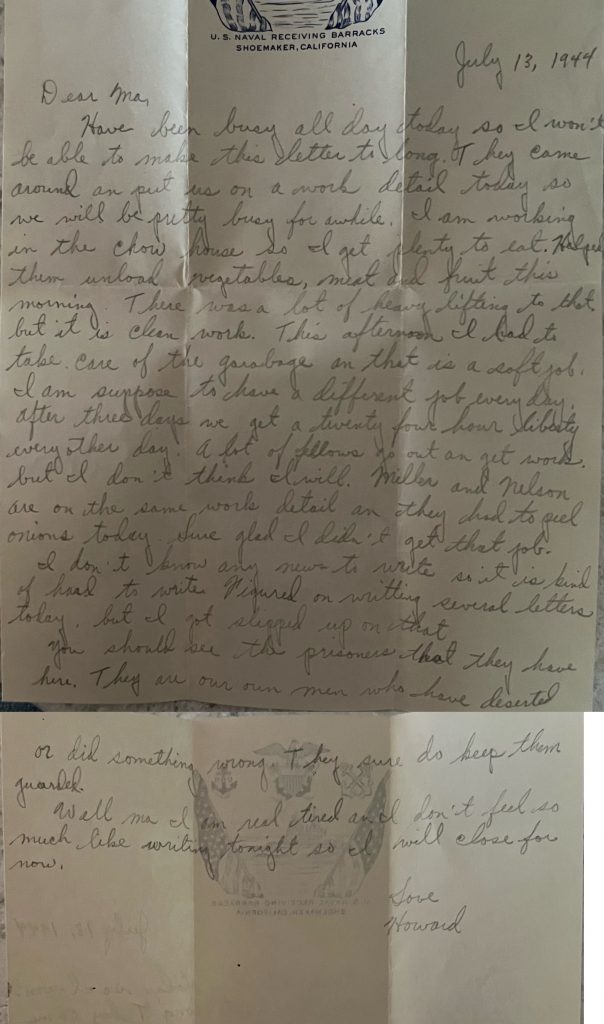 U.S. NAVAL RECEIVING BARRACKS
SHOEMAKER, CALIFORNIA
July 13, 1944
Dear Ma,
Have been busy all day today so I won't
be able to make this letter to long. They came
around an put us on a work detail today so
we will be pretty busy for awhile. I am working
in the chow house so I get plenty to eat. Helped
them unload vegetables, meat and fruit this
morning. There was a lot of heavy lifting to that
but it is clean work. This afternoon I had to
take care of the garabage an that is a soft job.
I am suppose to have a different job every day.
After three days we get a twenty four hour liberty
every other day. A lot of fellows go out an get work.
but I don't think I will. Miller and Nelson
are on the same work detail an they had to peel
onions today. Sure glad I didn't get that job.
I don't know any news to write so it is kind
of hard to write. Figured on writting several letters
today, but I got slipped up on that.
You should see the prisoners that they have
here. They are our own men who have deserted
or did something wrong. They sure do keep them
guarded.
Well ma I am real tired an I don't feel so
much like writing tonight so I will close for
now.
Love
Howard
U.S. NAVAL RECEIVING BARRACKS
SHOEMAKER, CALIFORNIA
July 13, 1944